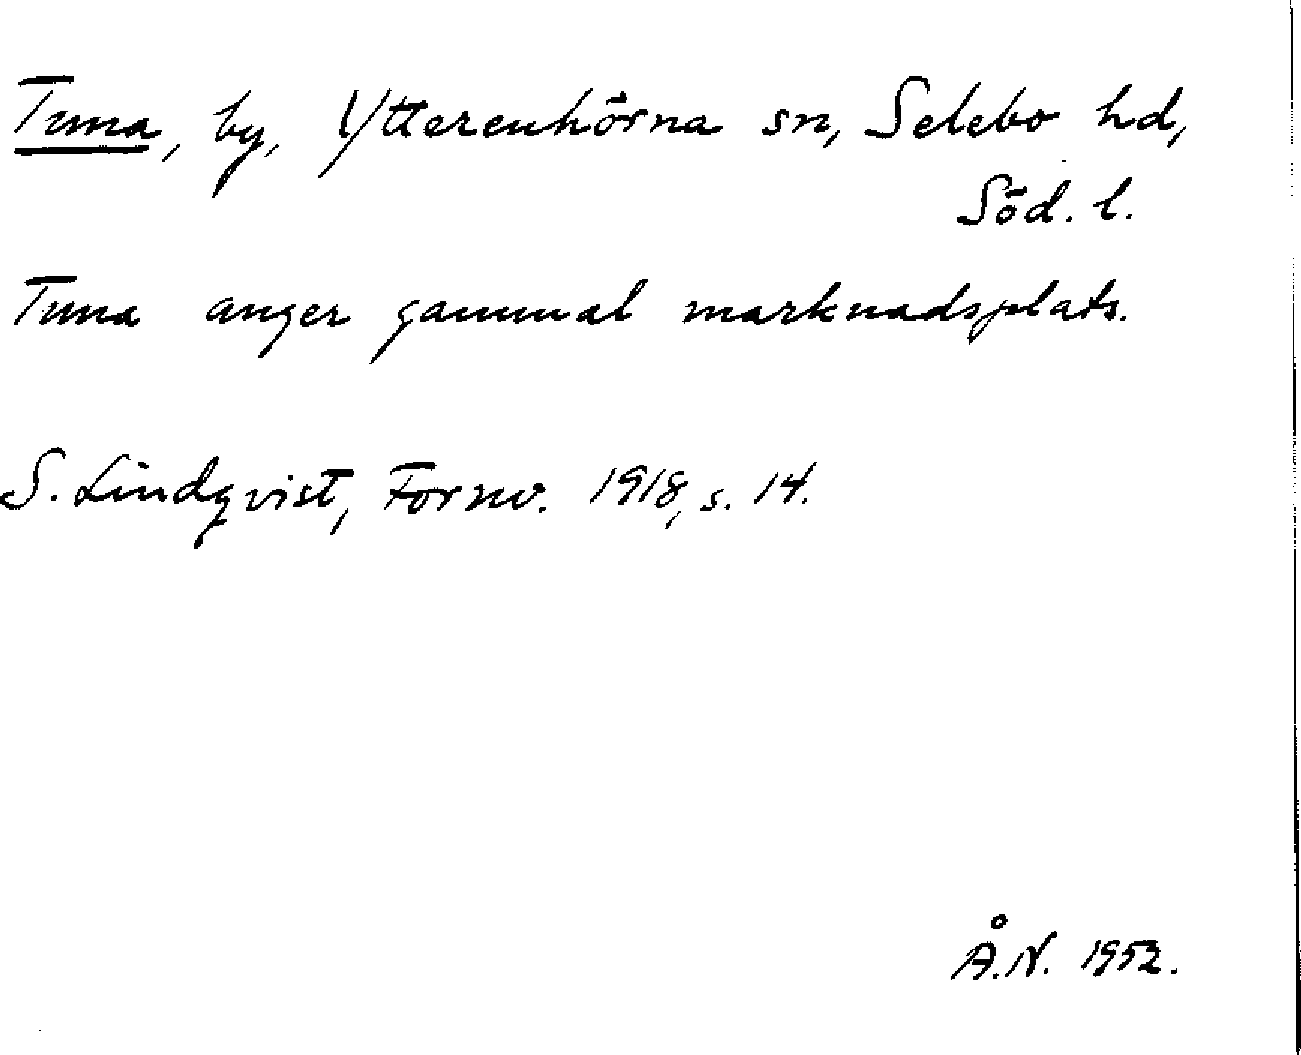 Tuna, by, Ytterenhörna sn, Selebo hd,
Söd. l.
Tuna anger gammal marknadsplats.
S. Lindqvist, Fornv. 1918, s. 14.
Å.N. 1952.